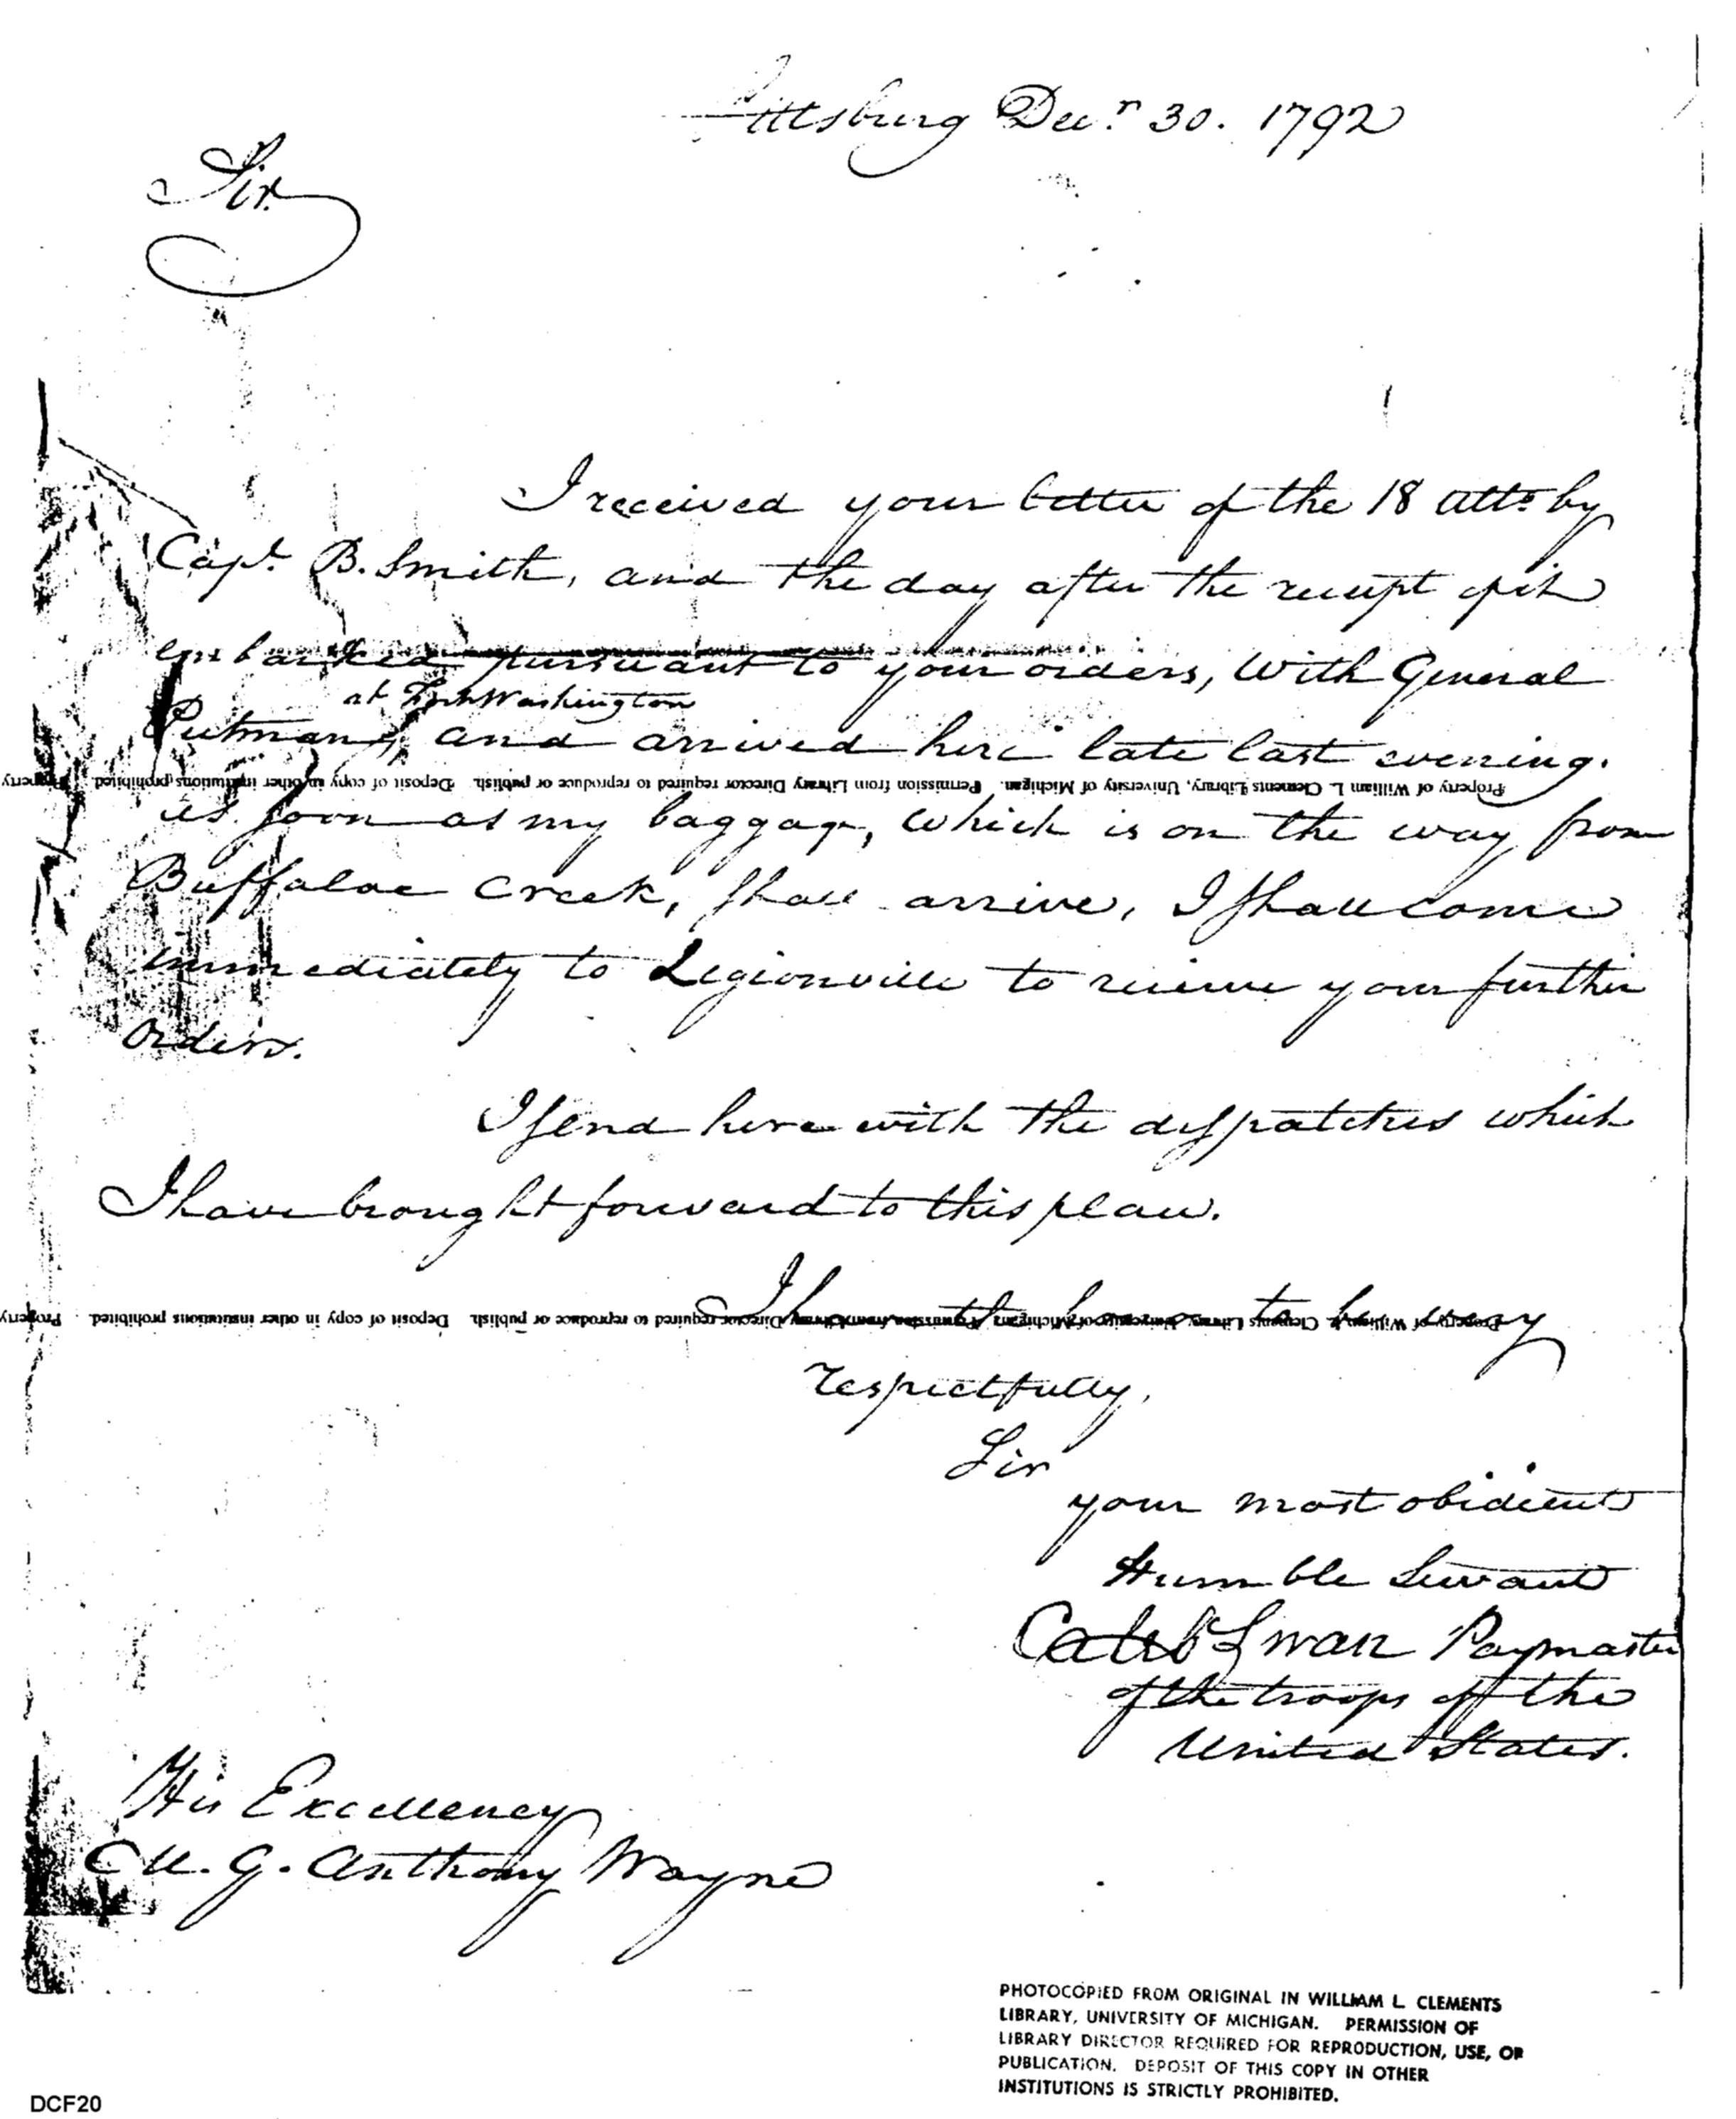 Pittsburg Decr. 30. 1792
Sir
I received your letter of the 18 ulto. by
Capt. B. Smith, and the day after the receipt of it
embarked pursuant to your orders, with General
at Fort Washington
Putnam, and arrived here late last evening.
Property of William L. Clements Library, University of Michigan. Permission from Library Director required to reproduce or publish. Deposit of copy in other institutions prohibited. Property
as soon as my baggage, which is on the way from
Buffaloe Creek, shall arrive, I shall come
immediately to Legionville to receive your further
orders.
I send herewith the dispatches which
I have brought forward to this place.
I have the honor to be very
Property of William L. Clements Library, University of Michigan. Permission from Library Director required to reproduce or publish. Deposit of copy in other institutions prohibited. Property
respectfully,
Sir
your most obidient
Humble Servant
Caleb Swan Paymaster
of the troops of the
United States.
His Excellency
M. G. Anthony Wayne
PHOTOCOPIED FROM ORIGINAL IN WILLIAM L. CLEMENTS
LIBRARY, UNIVERSITY OF MICHIGAN. PERMISSION OF
LIBRARY DIRECTOR REQUIRED FOR REPRODUCTION, USE, OR
PUBLICATION. DEPOSIT OF THIS COPY IN OTHER
INSTITUTIONS IS STRICTLY PROHIBITED.
DCF20